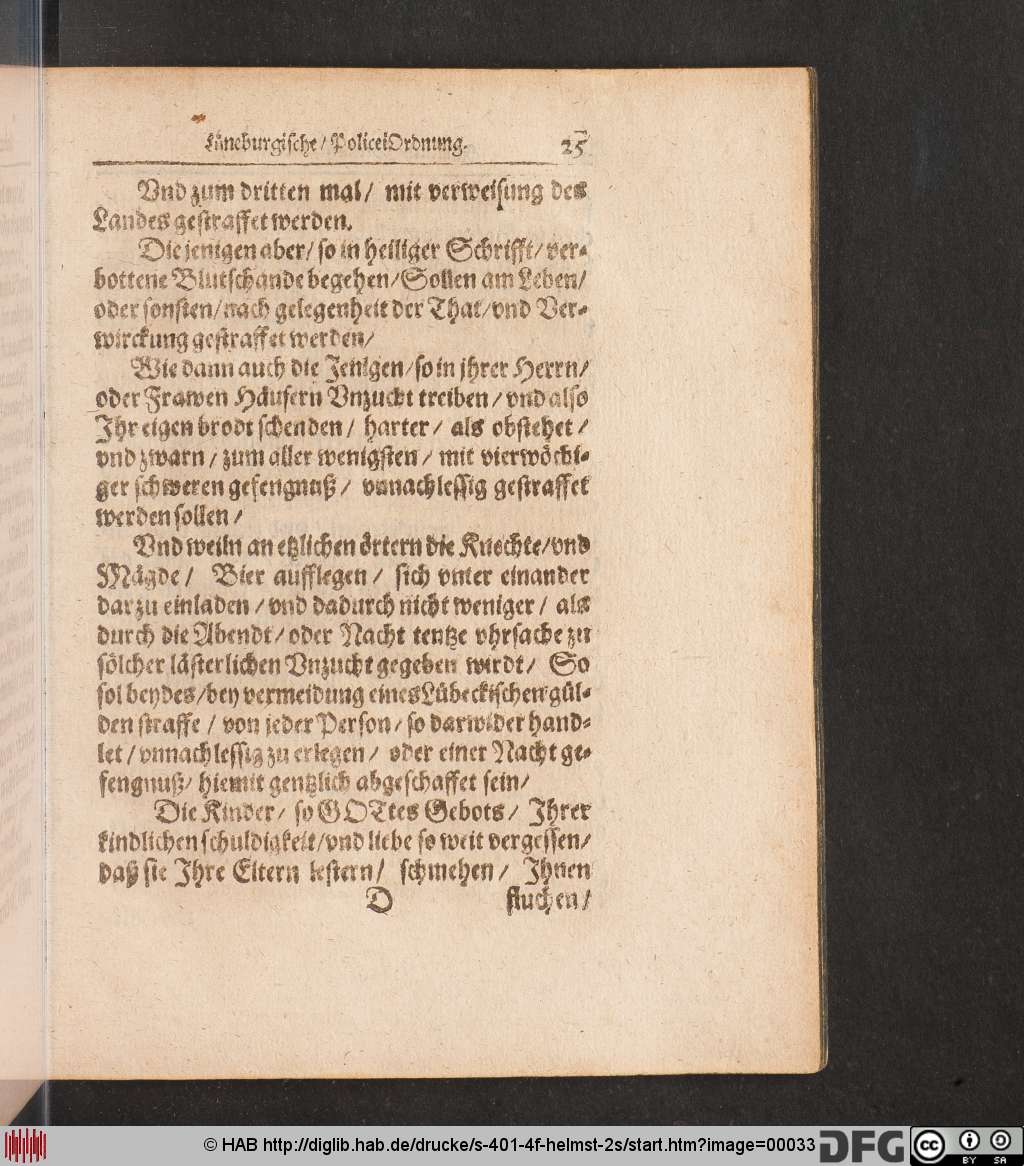 Lüneburgische/ PoliceiOrdnung. 25
Vnd zum dritten mal/ mit verweisung des
Landes gestraffet werden.
Die jenigen aber/ so in heiliger Schrifft/ ver-
bottene Blutschande begehen/ Sollen am Leben/
oder sonsten/ nach gelegenheit der That/ vnd Ver-
wirckung gestraffet werden/
Wie dann auch die Jenigen/ so in jhrer Herrn/
oder Frawen Häusern Vnzucht treiben/ vnd also
Ihr eigen brodt schenden/ harter/ als obstehet/
vnd zwarn/ zum aller wenigsten/ mit vierwöchi-
ger schweren gefengnuß/ vnnachlessig gestraffet
werden sollen/
Vnd weiln an etzlichen örtern die Knechte/ vnd
Mägde/ Bier aufflegen/ sich vnter einander
darzu einladen/ vnd dadurch nicht weniger/ als
durch die Abendt/ oder Nacht tentze vhrsache zu
sölcher lästerlichen Vnzucht gegeben wirdt/ So
sol beydes/ bey vermeidung eines Lübeckischen gül-
den straffe/ von jeder Person/ so darwider hand-
let/ vnnachlessig zu erlegen/ oder einer Nacht ge-
fengnuß/ hiemit gentzlich abgeschaffet sein/
Die Kinder/ so GOTtes Gebots/ Ihrer
kindlichen schuldigkeit/ vnd liebe so weit vergessen/
daß sie Ihre Eltern lestern/ schmehen/ Ihnen
D fluchen/
© HAB http://diglib.hab.de/drucke/s-401-4f-helmst-2s/start.htm?image=00033 DFG cc BY SA